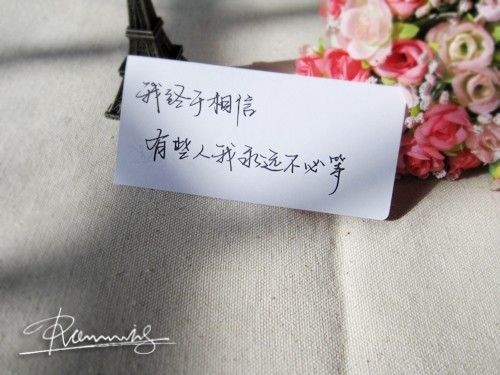 我终于相信
有些人我永远不必等
Running